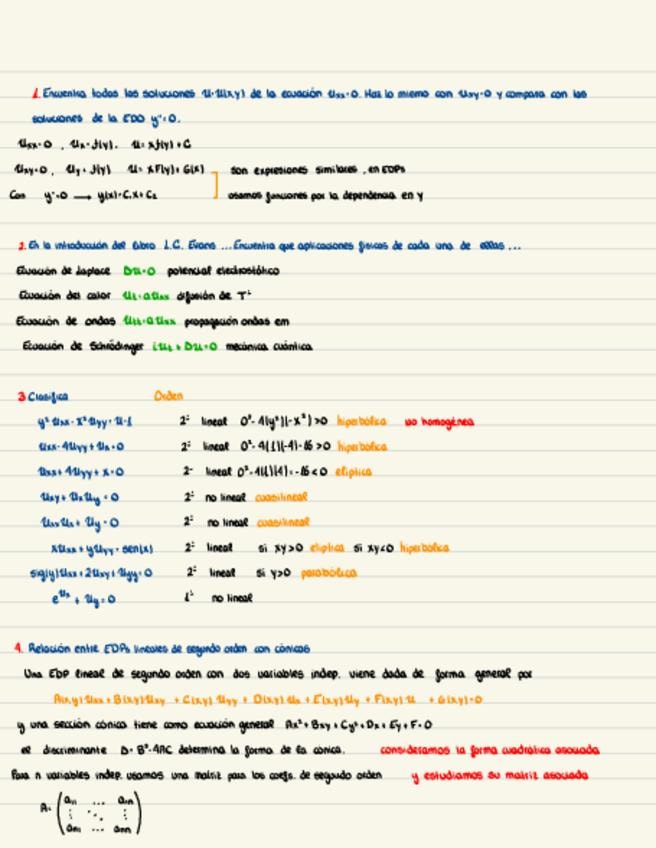 1. Encuentra todas las soluciones u=u(x,y) de la ecuación uxx=0. Haz lo mismo con uxy=0 y compara con las
soluciones de la EDO y''=0.
uxx=0, ux=f(y). u=xf(y)+C
uxy=0, uy=f(y) u=xF(y)+G(x) son expresiones similares, en EDPs
Con y''=0 → y(x)=C1x+C2 usamos funciones por la dependencia en y
2. En la introducción del libro L.C. Evans ...Encuentra que aplicaciones físicas de cada una de ellas...
Ecuación de Laplace Δu=0 potencial electrostático
Ecuación del calor ut=auxx difusión de Tª
Ecuación de ondas utt=auxx propagación ondas em
Ecuación de Schrödinger iut+Δu=0 mecánica cuántica
3 Clasifica Orden
y²uxx-x²uyy=u-1 2º lineal 0²-4(y²)(-x²)>0 hiperbólica no homogénea
uxx-4uyy+ux=0 2º lineal 0²-4(1)(-4)=16>0 hiperbólica
uxx+4uyy+x=0 2º lineal 0²-4(1)(4)=-16<0 elíptica
uxy+uxuy=0 2º no lineal cuasilineal
uxxux+uy=0 2º no lineal cuasilineal
xuxx+yuyy=sen(x) 2º lineal si xy>0 elíptica si xy<0 hiperbólica
sig(y)uxx+2uxy+uyy=0 2º lineal si y>0 parabólica
e^ux+uy=0 1º no lineal
4. Relación entre EDPs lineales de segundo orden con cónicas
Una EDP lineal de segundo orden con dos variables indep. viene dada de forma general por
A(x,y)uxx+B(x,y)uxy+C(x,y)uyy+D(x,y)ux+E(x,y)uy+F(x,y)u+G(x,y)=0
y una sección cónica tiene como ecuación general Ax²+Bxy+Cy²+Dx+Ey+F=0
el discriminante D=B²-4AC determina la forma de la cónica. consideramos la forma cuadrática asociada
Para n variables indep. usamos una matriz para los coefs. de segundo orden y estudiamos su matriz asociada
A= (a11 ... a1n
⋮ ⋱ ⋮
an1 ... ann)